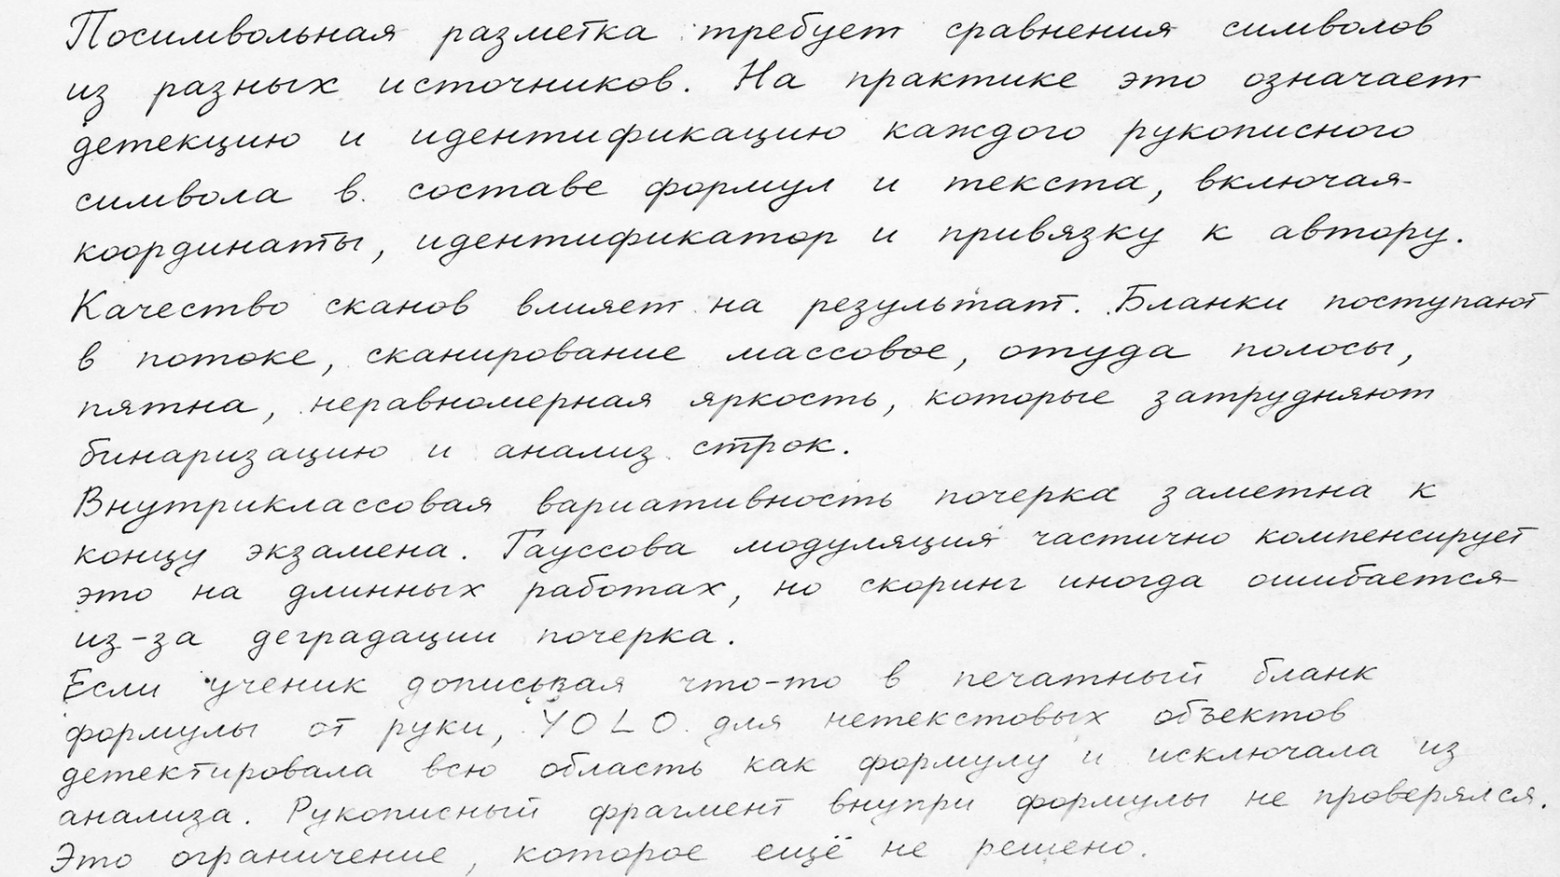 Посимвольная разметка требует сравнения символов
из разных источников. На практике это означает
детекцию и идентификацию каждого рукописного
символа в составе формул и текста, включая
координаты, идентификатор и привязку к автору.
Качество сканов влияет на результат. Бланки поступают
в потоке, сканирование массовое, отуда полосы,
пятна, неравномерная яркость, которые затрудняют
бинаризацию и анализ строк.
Внутриклассовая вариативность почерка заметна к
концу экзамена. Гауссова модуляция частично компенсирует
это на длинных работах, но скоринг иногда ошибается
из-за деградации почерка.
Если ученик дописывая что-то в печатный бланк
формулы от руки, YOLO для нетекстовых объектов
детектировала всю область как формулу и исключала из
анализа. Рукописный фрагмент внупри формулы не проверялся.
Это ограничение, которое ещё не решено.